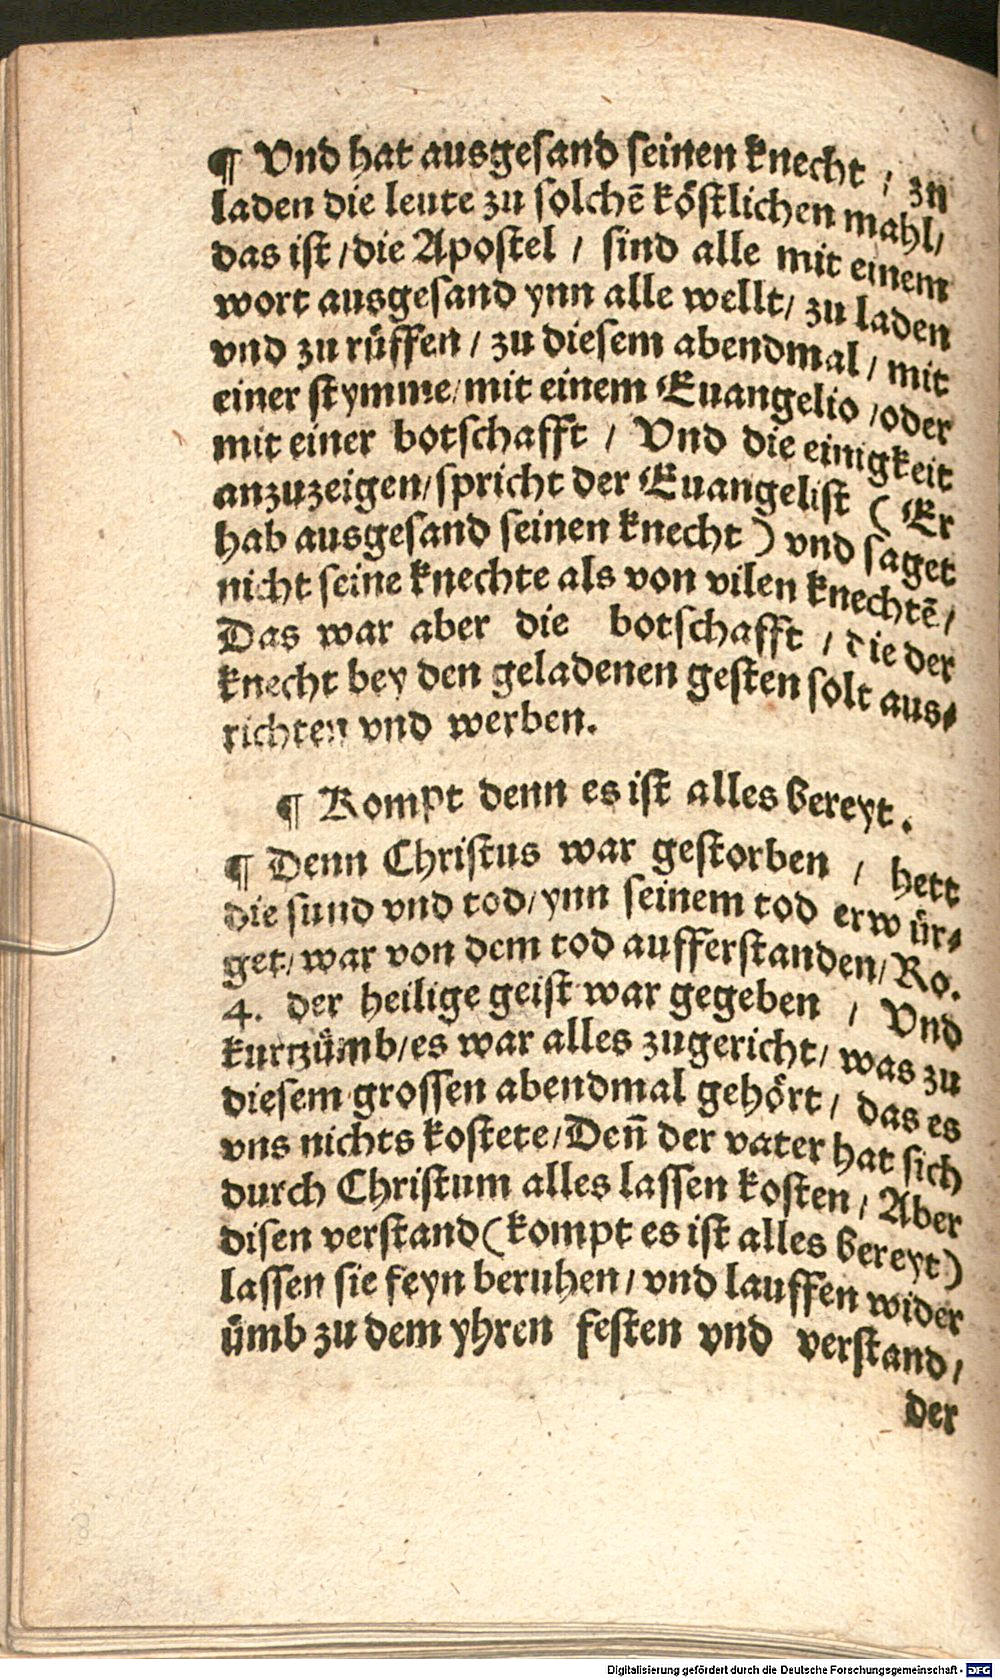 ¶ Vnd hat ausgesand seinen knecht / zu
laden die leute zu solchẽ köstlichen mahl/
das ist /die Apostel / sind alle mit einem
wort ausgesand ynn alle wellt/ zu laden
vnd zu rüffen / zu diesem abendmal / mit
einer stymme/mit einem Euangelio /oder
mit einer botschafft / Vnd die einigkeit
anzuzeigen/spricht der Euangelist ( Er
hab ausgesand seinen knecht ) vnd saget
nicht seine knechte als von vilen knechtẽ /
Das war aber die botschafft / die der
knecht bey den geladenen gesten solt aus⸗
richten vnd werben.
¶ Kompt denn es ist alles bereyt.
¶ Denn Christus war gestorben / hett
die sund vnd tod/ ynn seinem tod erwür⸗
get/ war von dem tod aufferstanden/ Ro.
4. der heilige geist war gegeben / Vnd
kurtzümb/es war alles zugericht/ was zu
diesem grossen abendmal gehört / das es
vns nichts kostete/Deñ der vater hat sich
durch Christum alles lassen kosten / Aber
disen verstand (kompt es ist alles bereyt)
lassen sie feyn beruhen / vnd lauffen wider
ümb zu dem yhren festen vnd verstand /
der
Digitalisierung gefördert durch die Deutsche Forschungsgemeinschaft - DFG